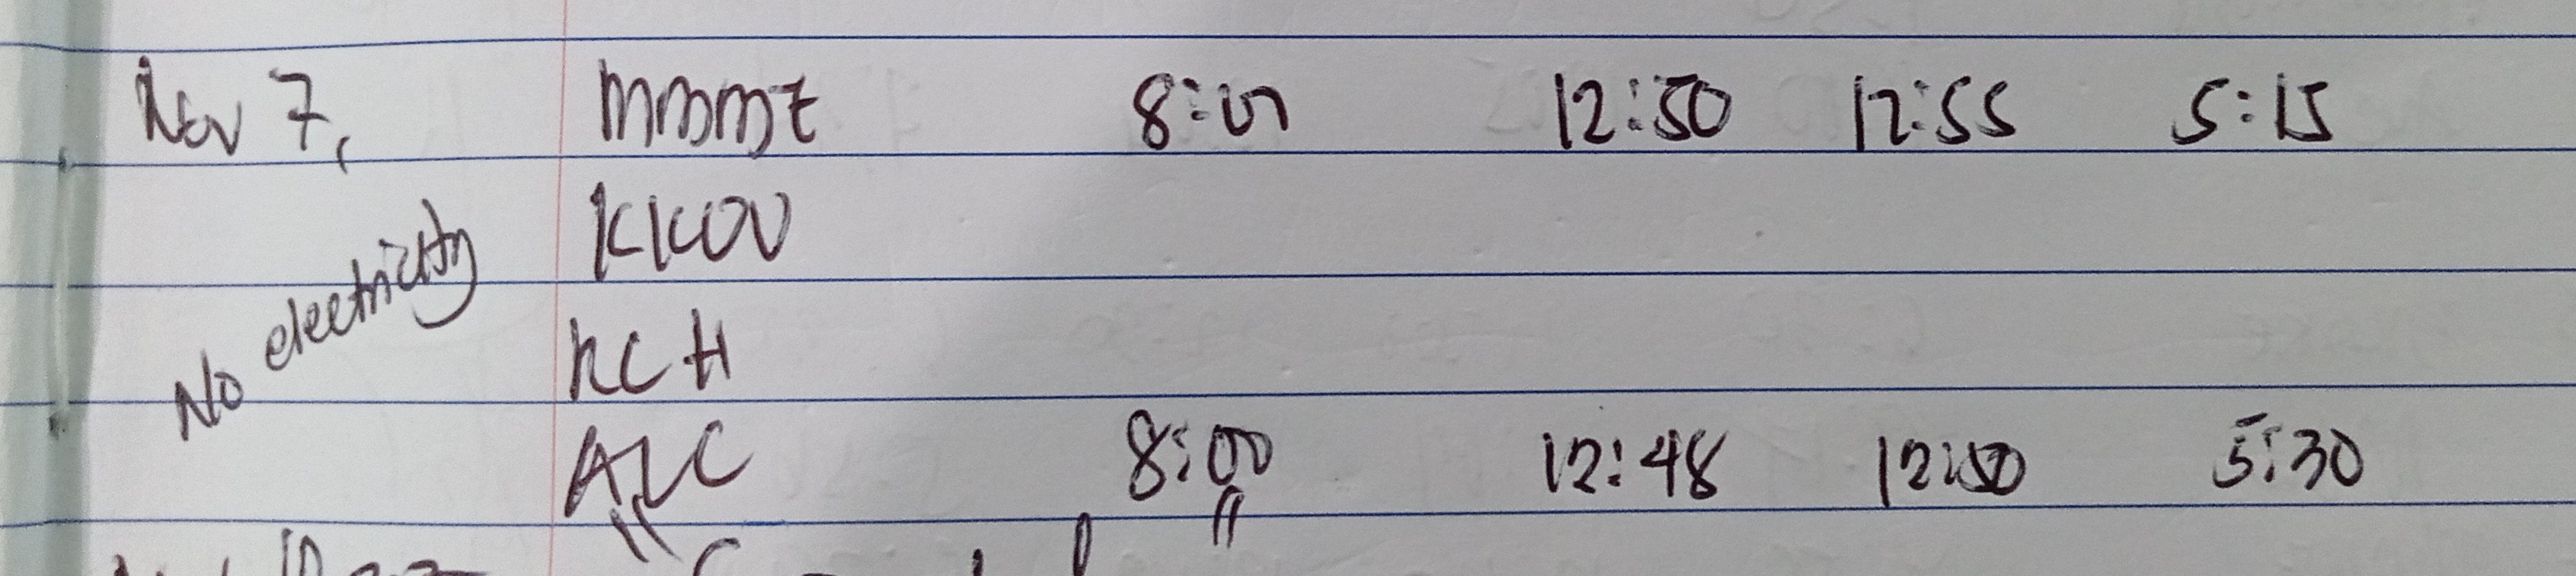 Nov 7, mmmt 8:01 12:50 12:55 5:15
KKOV
No electricity KCH
AZC 8:00 12:48 12:50 5:30